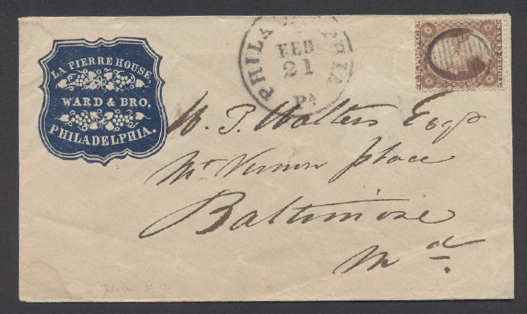 LA PIERRE HOUSE
WARD & BRO,
PHILADELPHIA.
PHILADELPHIA
FEB
21
Pa
W. T. Walters Esqr
Mt Vernon place
Baltimore
Md.